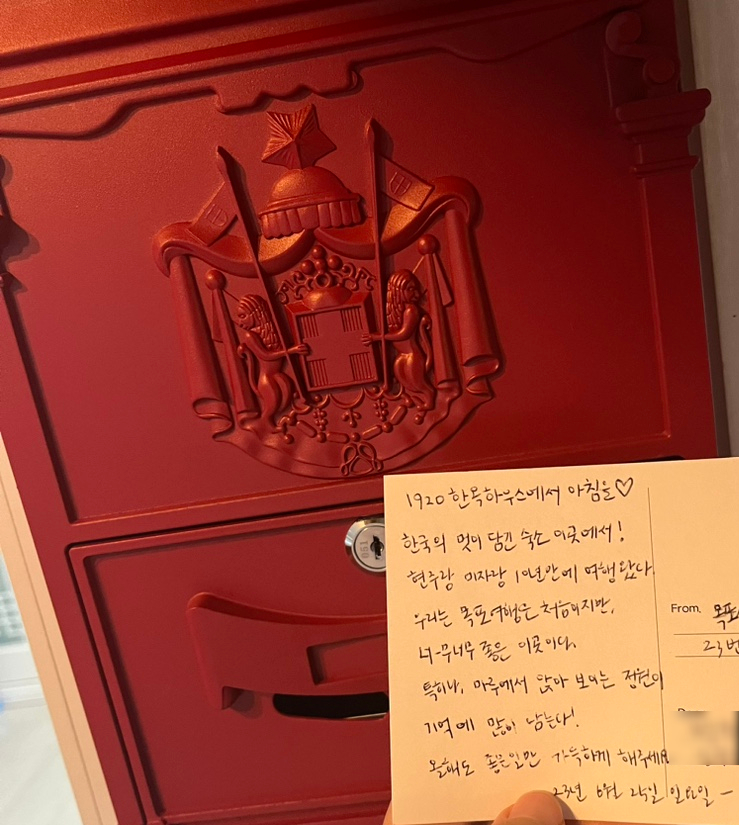 1920 한옥하우스에서 아침을♡
한국의 멋이 담긴 숙소 이곳에서!
현주랑 미자랑 10년만에 여행왔다.
우리는 목포여행은 처음이지만,
너-무너무 좋은 이곳이다.
특히나, 마루에서 앉아 보이는 정원이
기억에 많이 남는다!
올해도 좋은일만 가득하게 해주세요
23년 6월 25일 일요일 -
From. 목포
23번